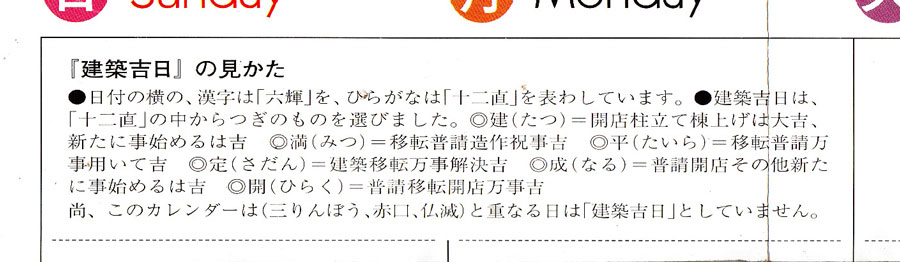 日 Sunday 月 Monday 火
『建築吉日』の見かた
●日付の横の、漢字は「六輝」を、ひらがなは「十二直」を表わしています。●建築吉日は、
「十二直」の中からつぎのものを選びました。◎建(たつ)=開店柱立て棟上げは大吉、
新たに事始めるは吉　◎満(みつ)=移転普請造作祝事吉　◎平(たいら)=移転普請万
事用いて吉　◎定(さだん)=建築移転万事解決吉　◎成(なる)=普請開店その他新た
に事始めるは吉　◎開(ひらく)=普請移転開店万事吉
尚、このカレンダーは(三りんぼう、赤口、仏滅)と重なる日は「建築吉日」としていません。